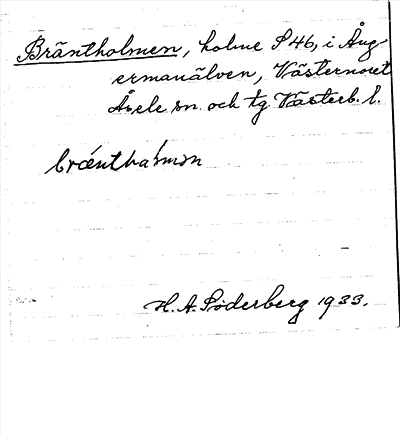 Bräntholmen, holme S 46, i Ång-
ermanälven, Västernoret
Åsele sn. och tg Västerb. l.
H. A. Söderberg 1933.